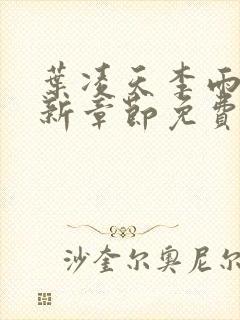 葉凌天李雨
新章節免費
沙奎尔奥尼尔